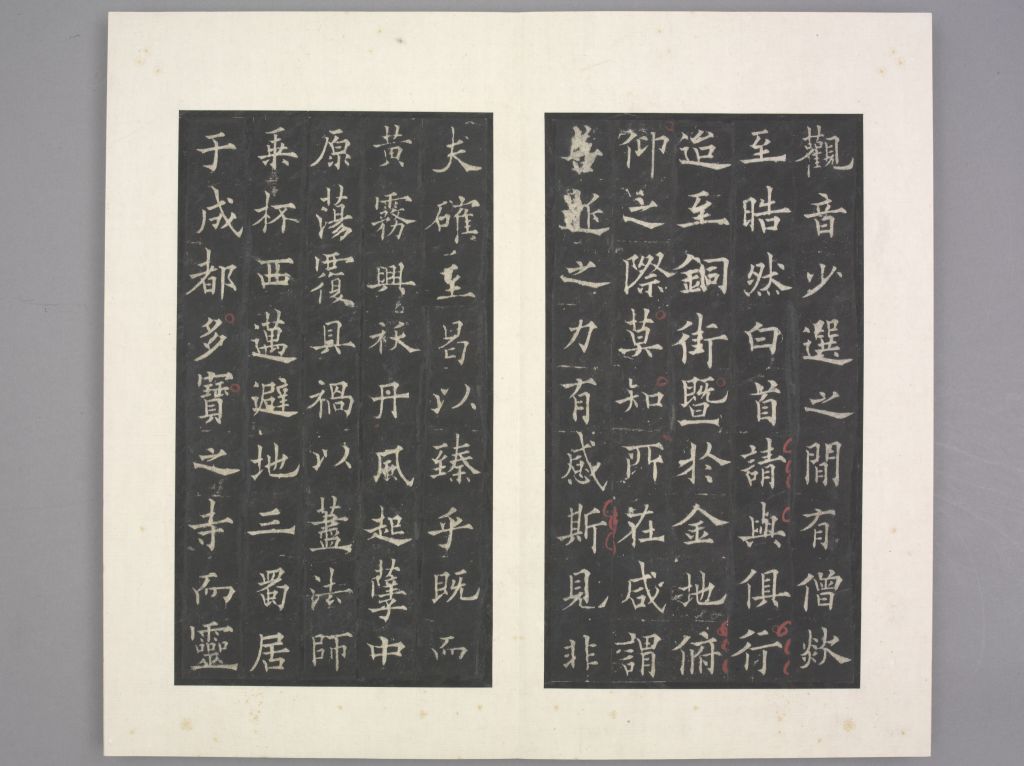 觀音少選之閒有僧欻
至晧然白首請與俱行
迨至銅街暨於金地俯
仰之際莫知所在咸謂
善逝之力有感斯見非
夫確至曷以臻乎既而
黃霧興祅丹風起孽中
原蕩覆具禍以藎法師
乘杯西邁避地三蜀居
于成都多寶之寺而靈